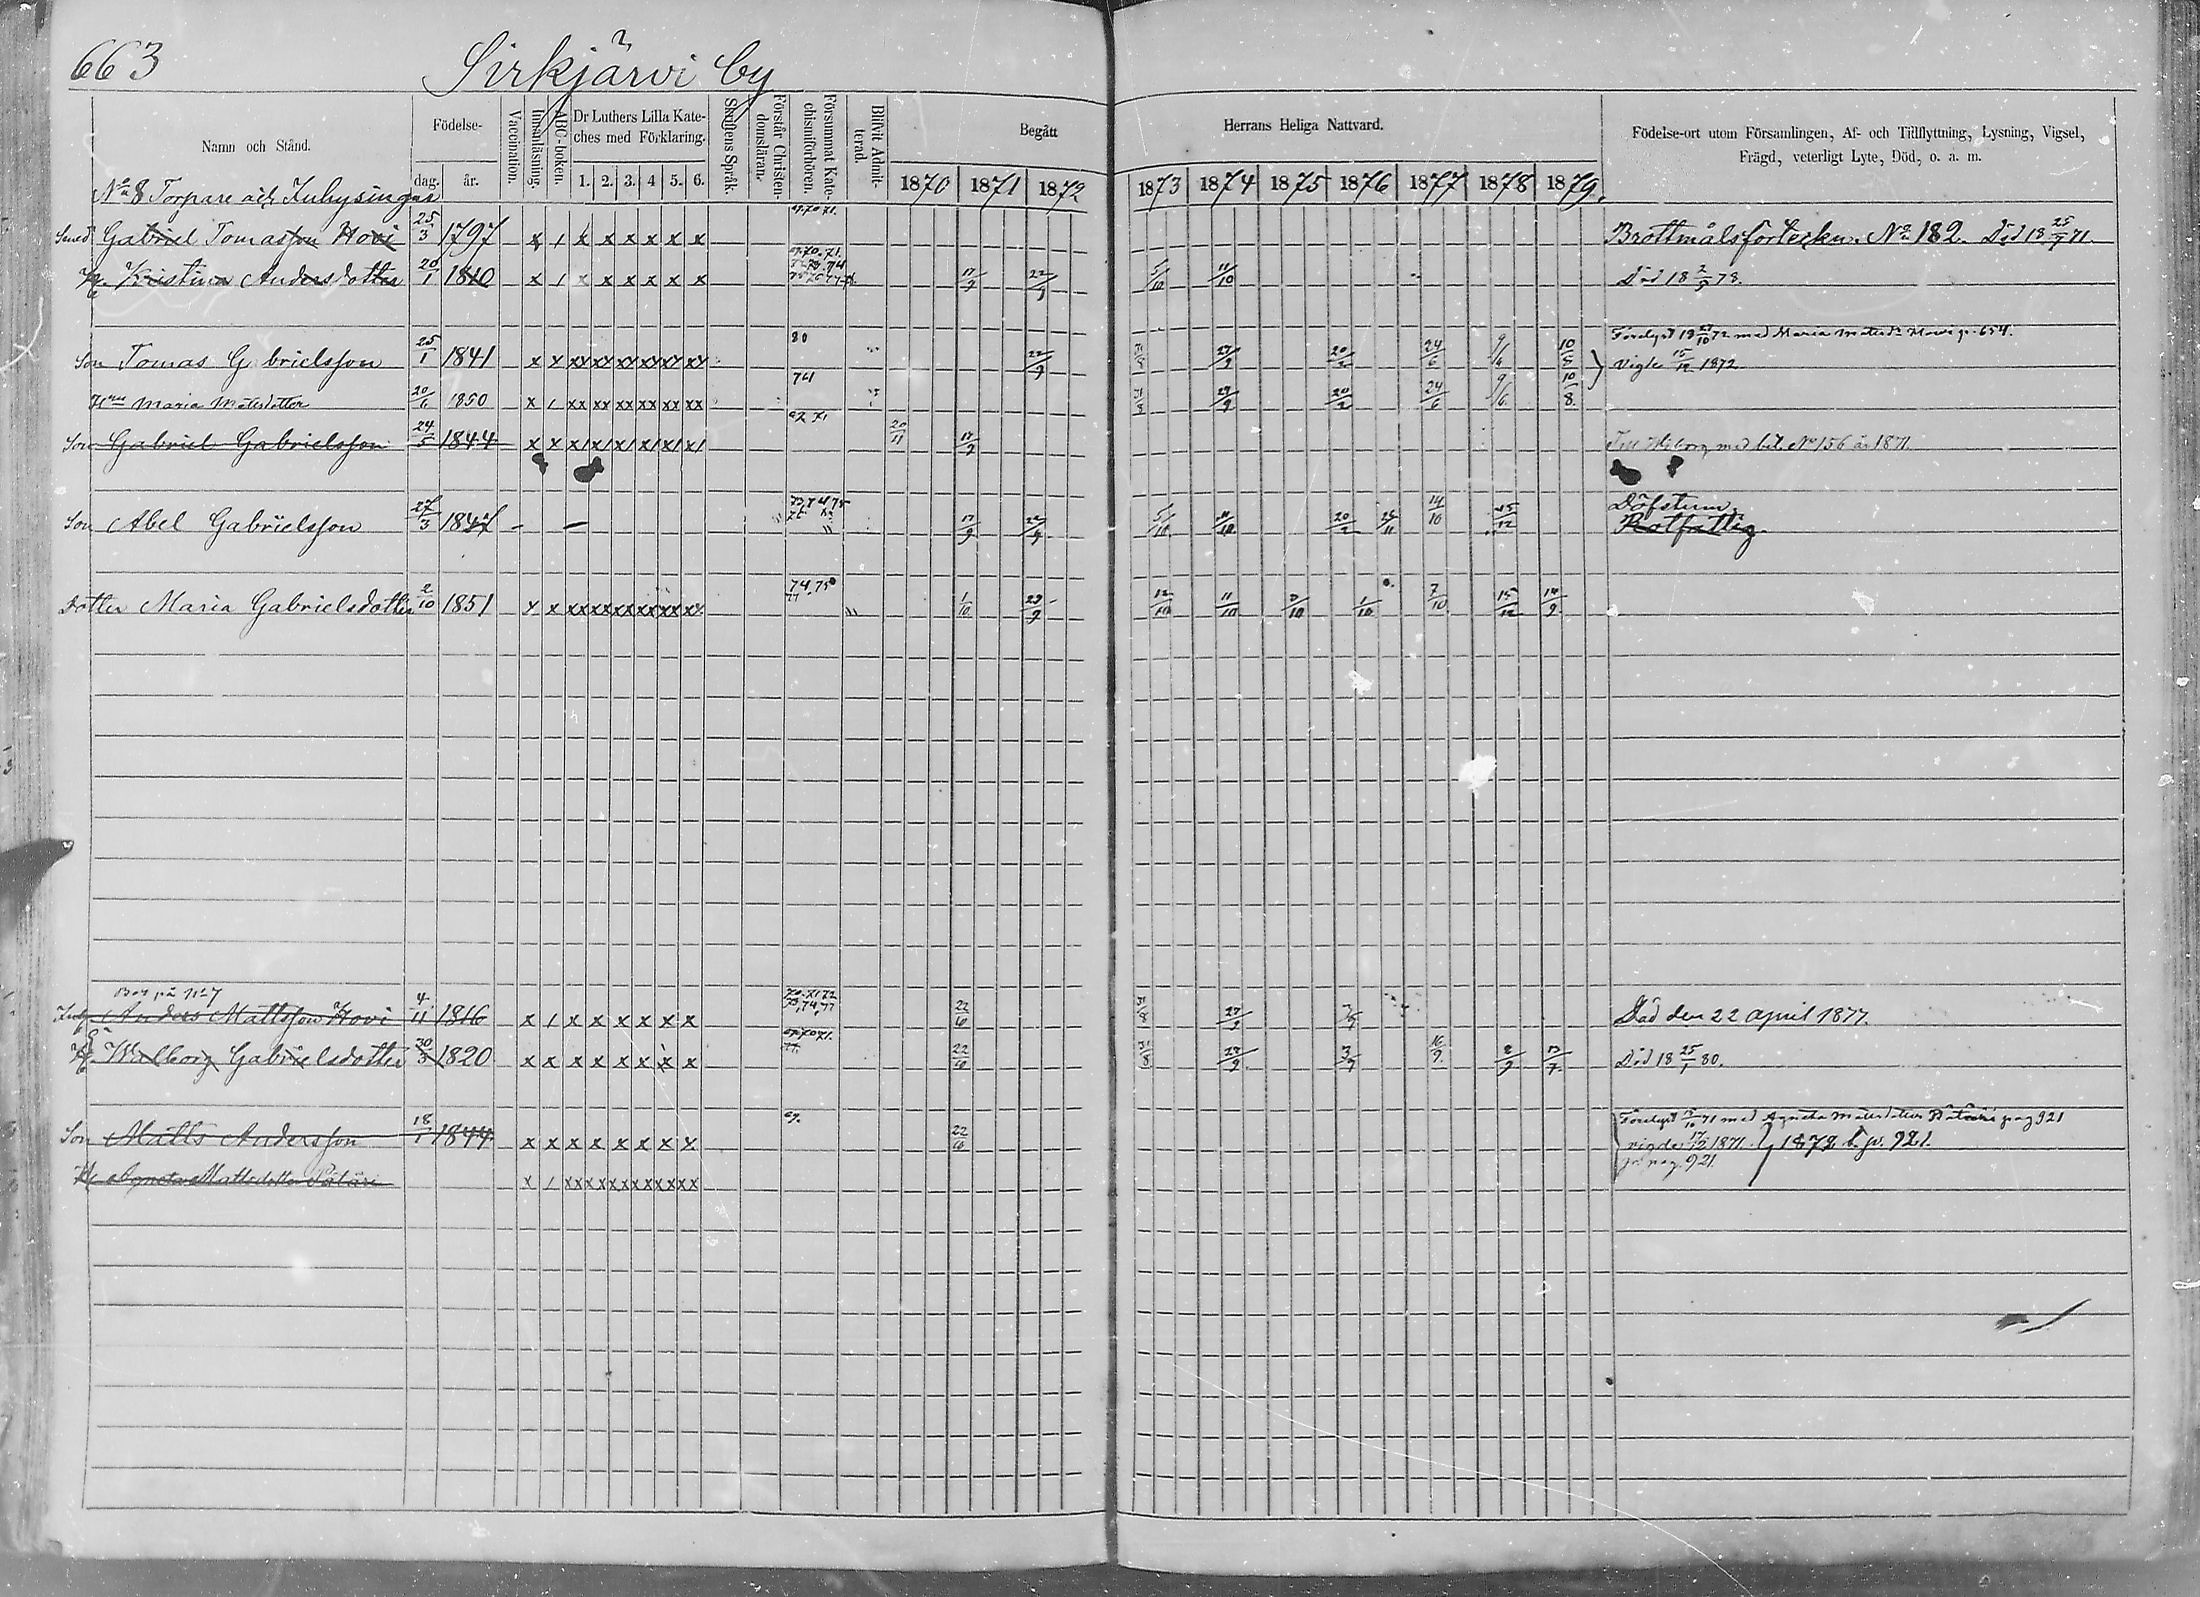 663 Sirkjärvi by
Namn och Stånd. Födelse- dag. år. Vaccination. Innanläsning. ABC-boken. Dr Luthers Lilla Kateches med Förklaring. 1. 2. 3. 4 5. 6. Skriftens Språk Förstår Christendomsläran. Försummat Katechismiförhören. Blifvit Admitterad. Begått Herrans Heliga Nattvard. Födelse-ort utom Församlingen, Af- och Tillflyttning, Lysning, Vigsel,
Frägd, veterligt Lyte, Död, o. a. m.
1870 1871 1872 1873 1874 1875 1876 1877 1878 1879.
No 8 Torpare och Inhysingar
Smed Gabriel Tomasson Hovi 25/3 1797 x / x x x x x x 69.70.71. Brottmålsförteckn. No 182. Död 18 25/7 71.
Kristina Andersdotter 20/1 1810 x / x x x x x x 17/9 22/9 5/10 11/10 Död 18 2/5 78.
Son Tomas Gabrielsson 25/1 1841 x x xx xx xx xx xx xx 80 22/9 29/9 20/2 24/6 9/6 10/8 72 med Maria Matsdr Hovi p. 654.
Vigde 15/12 1872
Maria Matsdotter 20/6 1850 x / xx xx xx xx xx xx 74 29/9 20/2 24/6 9/6 10/8.
Son Gabriel Gabrielsson 24/5 1844 x x x/ x/ x/ x/ x/ x/ 20/11 17/9 Till Wiborg med bet. No 156 år 1871.
Son Abel Gabrielsson 27/3 1847 - - 73,74,75 17/9 22/9 5/10 11/10 20/2 26/11 14/10 15/12 Döfstum.
Rotfattig.
Dotter Maria Gabrielsdotter 2/10 1851 x x xx xx xx xx xx xx 74,75 1/10 29/9 12/10 11/10 3/10 1/10 7/10 15/12 14/9
Bor på No 7
Anders Mattsson Hovi 4/11 1816 x / x x x x x x 70.71.72 73,74,77 22/6 27/9 3/9 Död den 22 april 1877.
Walborg Gabrielsdotter 30/3 1820 x x x x x x x x 69.70.71. 77. 22/6 27/9 3/9 16/9. 8/9 13/7 Död 18 25/1 80.
Son Matts Andersson 18/1 1844 x x x x x x x x 69. 22/6 71 med Agneta Mattsdotter Pätäri pag 921
vigde 17/12 1871. 1872 b. p. 921.
pag. 921.
Agneta Mattsdotter Pätäri x / xx xx xx xx xx xx